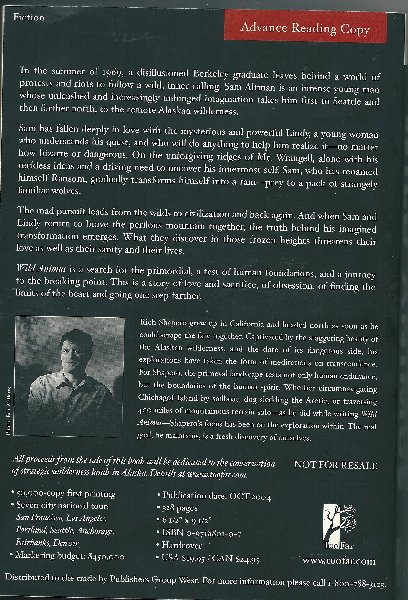 Fiction
Advance Reading Copy
In the summer of 1969, a disillusioned Berkeley graduate leaves behind a world of
protests and riots to follow a wild, inner calling. Sam Altman is an intense young man
whose unleashed and increasingly unhinged imagination takes him first to Seattle and
then farther north, to the remote Alaskan wilderness.
Sam has fallen deeply in love with the mysterious and powerful Lindy, a young woman
who understands his quest, and who will do anything to help him realize it—no matter
how bizarre or dangerous. On the unforgiving ridges of Mt. Wrangell, alone with his
reckless ideas and a driving need to uncover his innermost self, Sam, who has renamed
himself Ransom, gradually transforms himself into a ram—prey to a pack of strangely
familiar wolves.
The mad pursuit leads from the wilds to civilization and back again. And when Sam and
Lindy return to brave the perilous mountain together, the truth behind his imagined
transformation emerges. What they discover in those frozen heights threatens their
love as well as their sanity and their lives.
Wild Animus is a search for the primordial, a test of human foundations, and a journey
to the breaking point. This is a story of love and sacrifice, of obsession, of finding the
limits of the heart and going one step farther.
Rich Shapero grew up in California and headed north as soon as he
could scrape the fare together. Captivated by the staggering beauty of
the Alaskan wilderness, and the dare of its dangerous side, his
explorations have taken the form of meditations on transcendence.
For Shapero, the primeval landscape tests not only human endurance,
but the boundaries of the human spirit. Whether circumnavigating
Chichagof Island by sailboat, dog sledding the Arctic, or traversing
miles of mountainous terrain solo—as he did while writing Wild
Animus—Shapero's focus has been on the exploration within. The real
goal, he maintains, is a fresh discovery of ourselves.
All proceeds from the sale of this book will be dedicated to the conservation
of strategic wilderness lands in Alaska. Details at www.toofar.com.
NOT FOR RESALE
• copy first printing
• Seven-city national tour
San Francisco, Los Angeles,
Portland, Seattle, Anchorage,
Fairbanks, Denver
• Marketing budget: $450,000
• Publication date: OCT 2004
• 328 pages
• 6 1/2" x 9 1/2"
• ISBN 0-9718801-0-7
• Hardcover
• USA · CAN $24.95
tooFar
www.toofar.com
Distributed to the trade by Publishers Group West. For more information please call 1-800-788-3123.